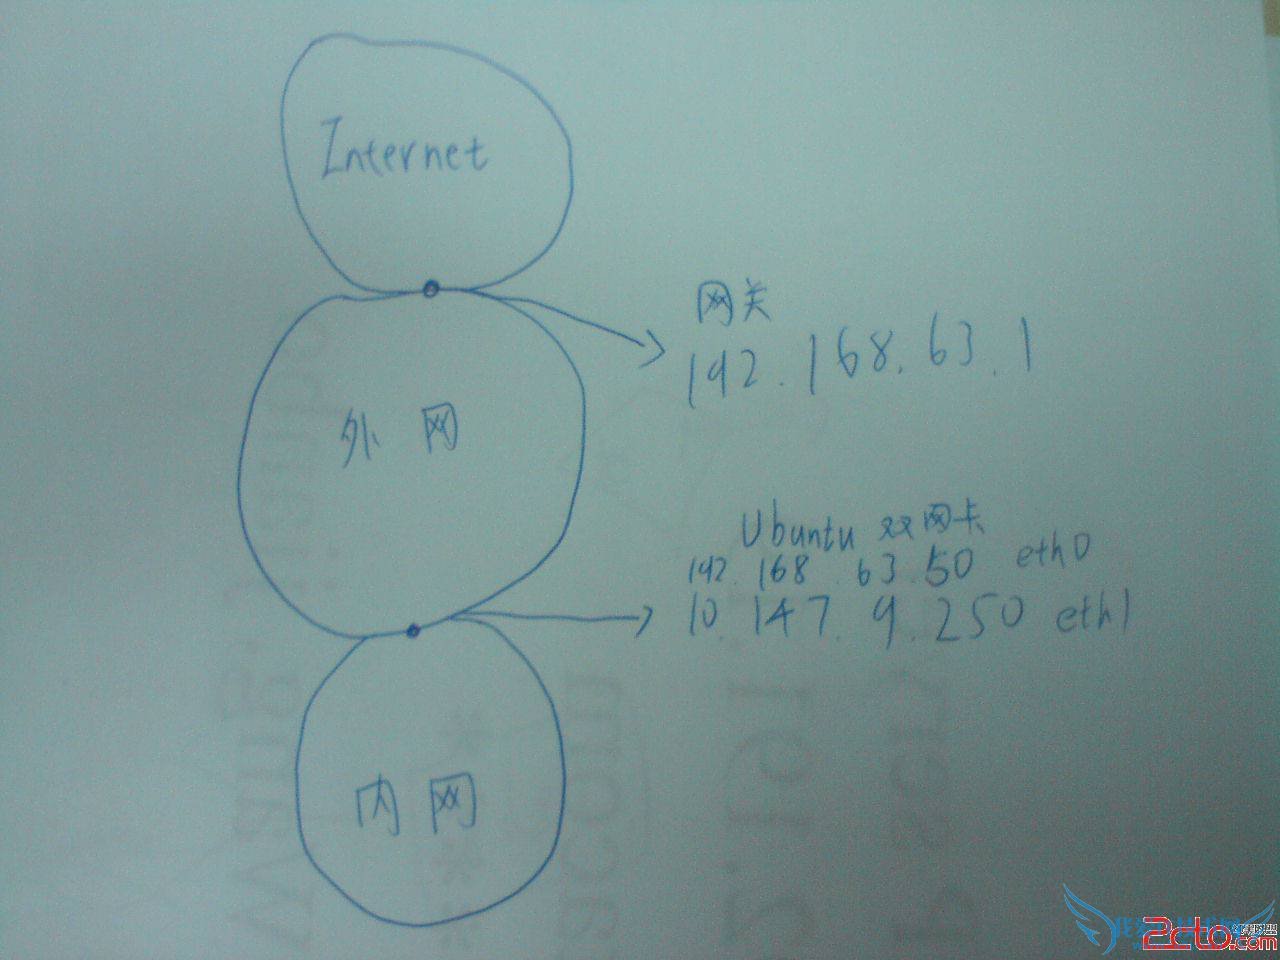 Internet
网关
192.168.63.1
外网
Ubuntu 双网卡
192.168.63.50 eth0
10.147.9.250 eth1
内网
2cto.com